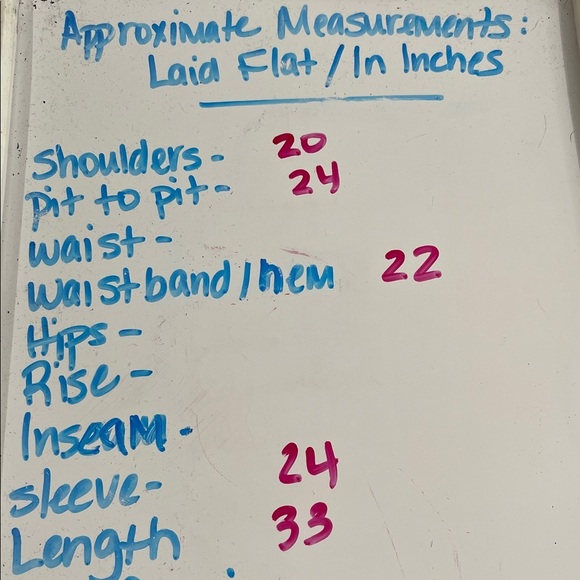 Approximate Measurements:
Laid Flat / In Inches
Shoulders - 20
pit to pit - 24
waist -
waistband / hem 22
Hips -
Rise -
Inseam -
sleeve - 24
Length 33